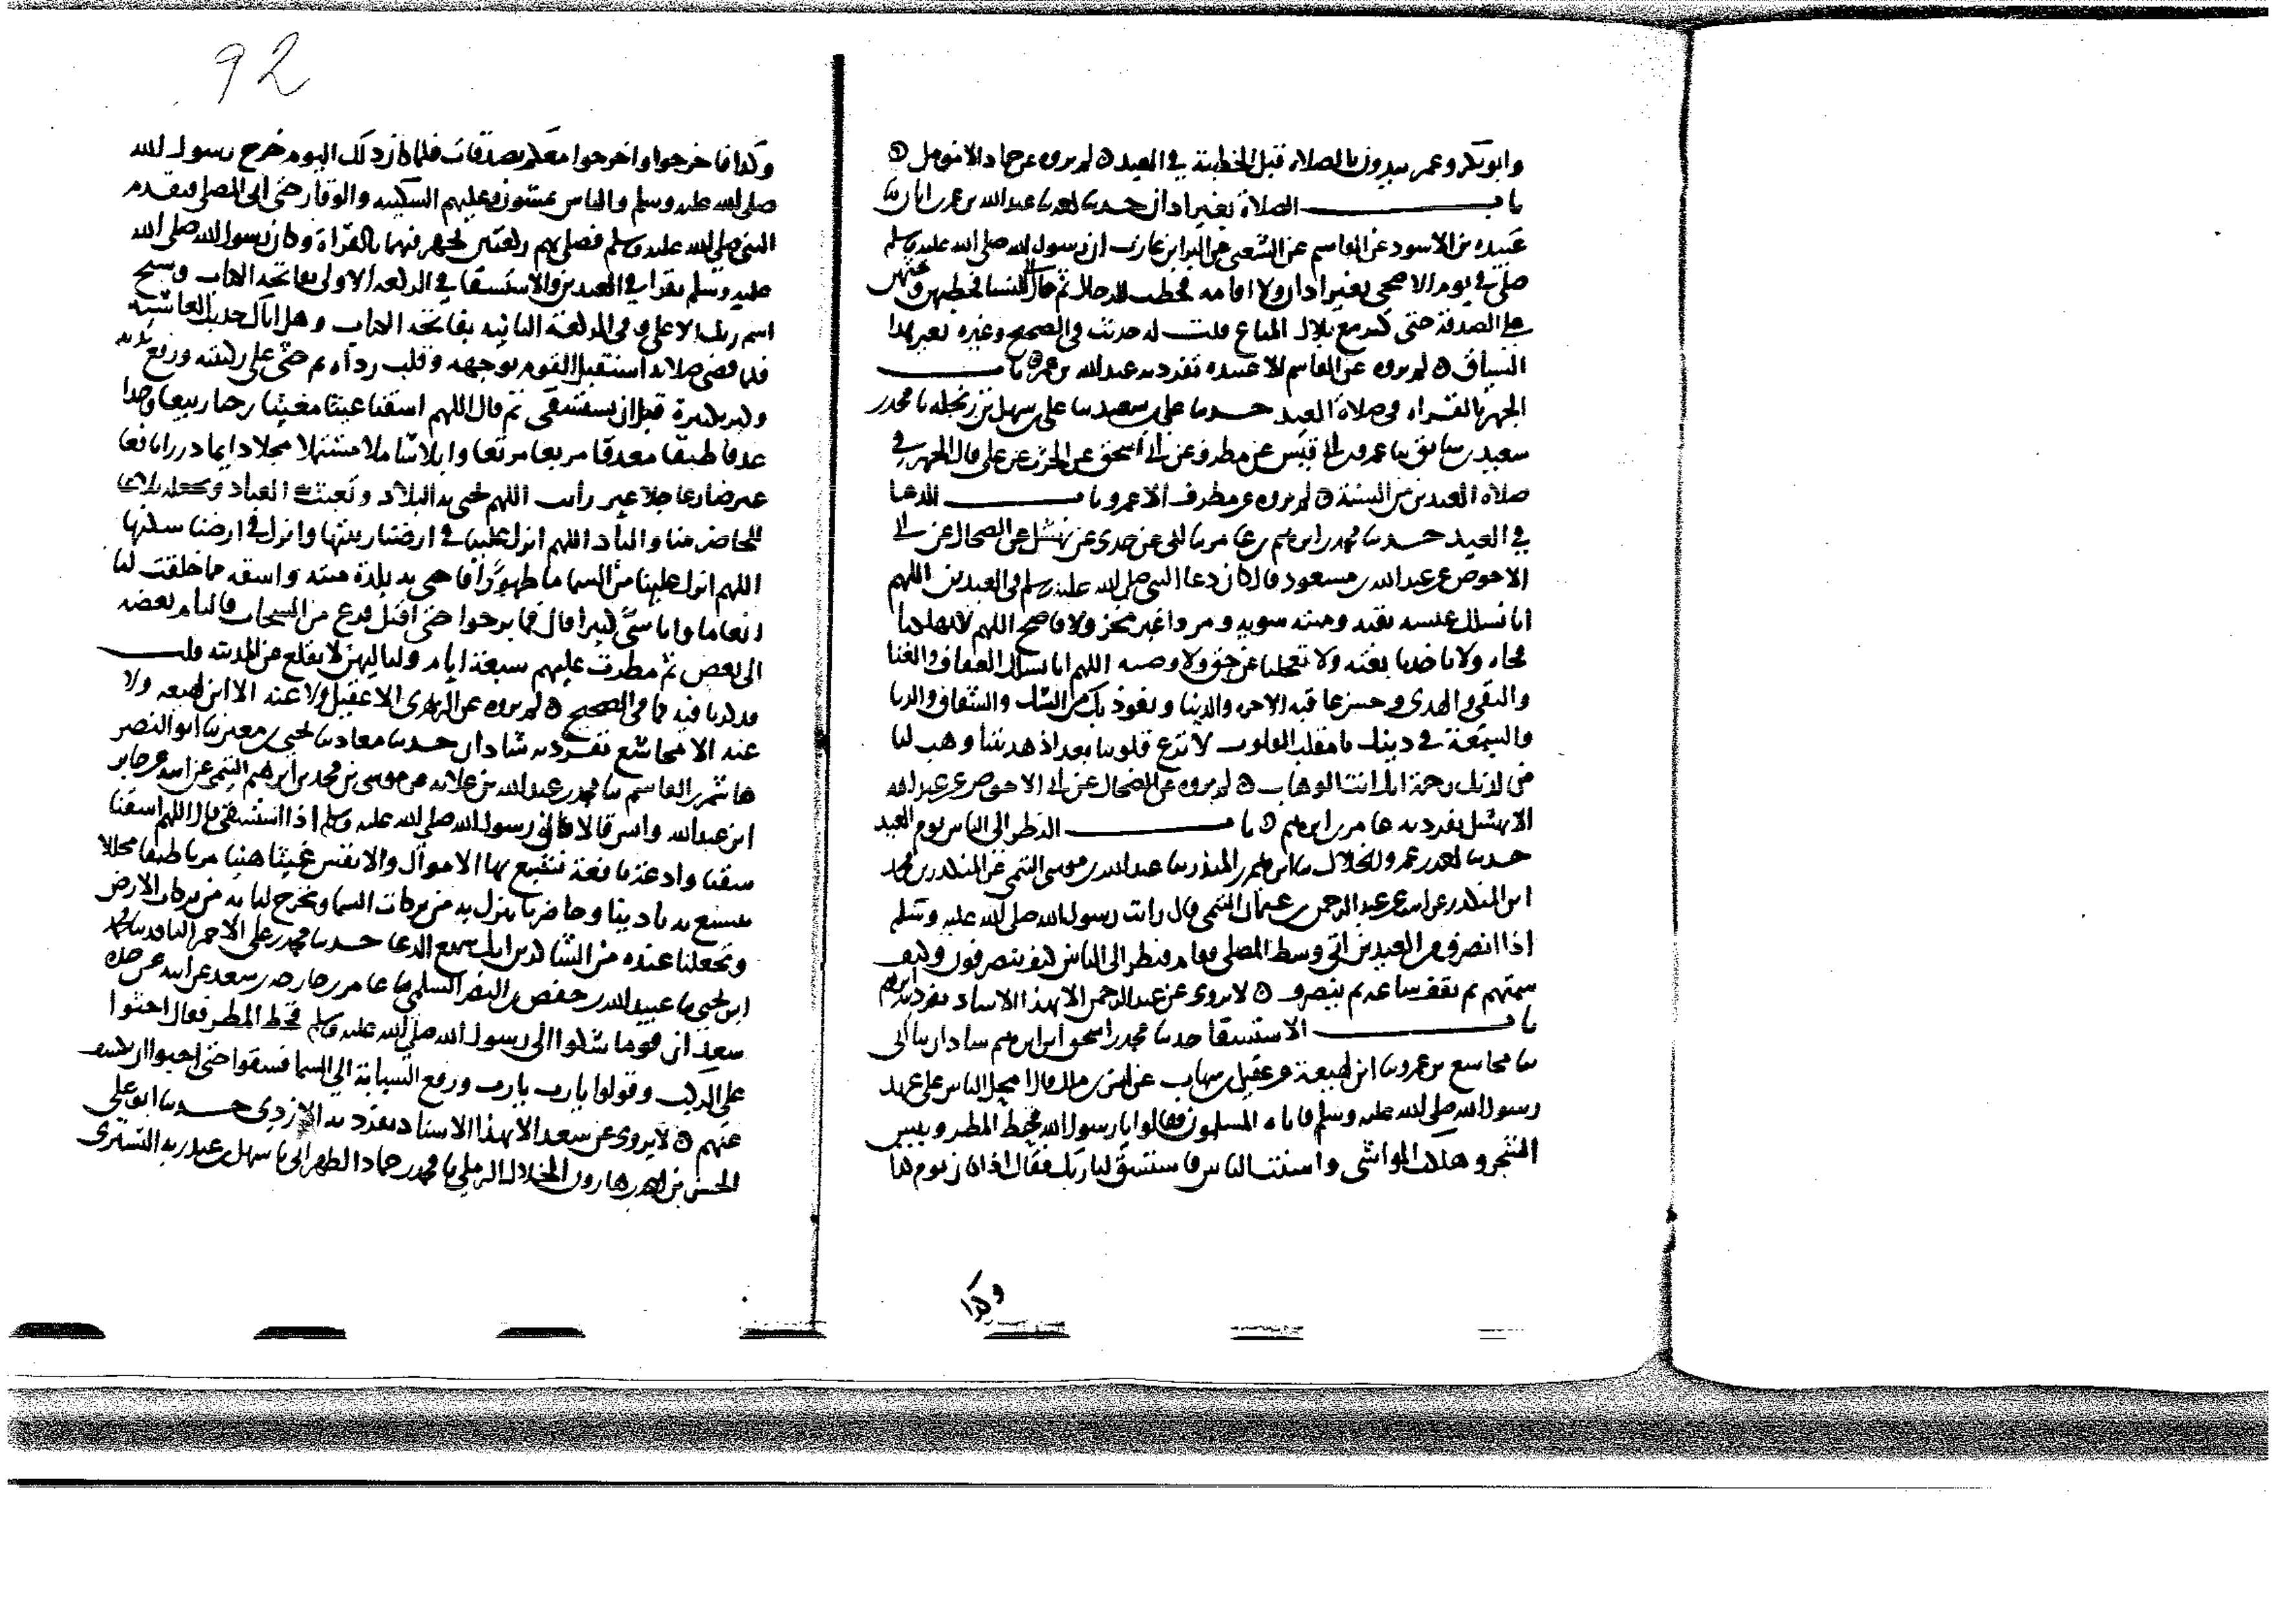 وابو بكر وعمر يبدون بالصلاة قبل الخطبة في العيد لم يروه عن حماد الا مومل
باب الصلاة بغير اذان حدثنا احمد ثنا عبد الله بن عمر بن ابان ثنا
عبيدة بن الاسود عن القاسم عن الشعبي عن البرا بن عازب ان رسول الله صلى الله عليه وسلم
صلى في يوم الاضحى بغير اذان ولا اقامه فخطب الرجال ثم مال الى النسا فخطبهن وحثهن
على الصدقة حتى كثر مع بلال المتاع قلت له حديث في الصحيح وغيره بغير هذا
السياق لم يروه عن القاسم الا عبيدة تفرد به عبد الله بن عمر باب
الجهر بالقراة في صلاة العيد حدثنا علي بن سعيد ثنا علي بن سهل بن زنجله ثنا محمد بن
سعيد بن سابق ثنا عمرو بن ابي قيس عن مطرف عن ابي اسحق عن الحرث عن علي قال الجهر في
صلاة العيدين من السنة لم يروه عن مطرف الا عمرو باب الدعا
في العيد حدثنا محمد بن ابرهيم بن عامر ثنا ابي عن جدي عن نهشل عن الضحاك عن ابي
الاحوص عن عبد الله بن مسعود قال كان دعا النبي صلى الله عليه وسلم في العيدين اللهم
انا نسالك عيشه تقيه وميته سويه ومردا غير مخز ولا فاضح اللهم لا تهلكنا
فجاه ولا تاخذنا بغته ولا تعجلنا عن حق ولا وصيه اللهم انا نسالك العفاف والغنا
والتقى والهدى وحسن عاقبه الاخرة والدنيا ونعوذ بك من الشك والشقاق والريا
والسمعة في دينك يا مقلب القلوب لا تزغ قلوبنا بعد اذ هديتنا وهب لنا
من لدنك رحمة انك انت الوهاب لم يروه عن الضحاك عن ابي الاحوص عن عبد الله
الا نهشل تفرد به عامر بن ابرهيم باب النظر الى الناس يوم العيد
حدثنا احمد بن عمرو الخلال ثنا ابرهيم بن المنذر ثنا عبد الله بن موسى التيمي عن المنكدر بن محمد
ابن المنكدر عن ابيه عن عبد الرحمن بن عثمان التيمي قال رايت رسول الله صلى الله عليه وسلم
اذا انصرف من العيدين اتى وسط المصلى فقام فنظر الى الناس كيف ينصرفون وكيف
سمتهم ثم يقف ساعه ثم ينصرف لا يروى عن عبد الرحمن الا بهذا الاسناد تفرد به ابرهيم
باب الاستسقا حدثنا محمد بن اسحق بن ابراهيم شاذان ثنا ابي
ثنا مجاشع بن عمرو ثنا ابن لهيعة عن عقيل عن ابن شهاب عن انس بن مالك قال امحل الناس على عهد
رسول الله صلى الله عليه وسلم فاتاه المسلمون فقالوا يا رسول الله قحط المطر ويبس
الشجر وهلكت المواشي واسنت الناس فاستسق لنا ربك فقال اذا كان يوم كذا
وكذا
وكذا فاخرجوا واخرجوا معكم بصدقات فلما كان ذلك اليوم خرج رسول الله
صلى الله عليه وسلم والناس يمشون وعليهم السكينه والوقار حتى اتى المصلى فتقدم
النبي صلى الله عليه وسلم فصلى بهم ركعتين يجهر فيهما بالقراة وكان رسول الله صلى الله
عليه وسلم يقرا في العيدين والاستسقا في الركعة الاولى بفاتحة الكتاب وسبح
اسم ربك الاعلى وفي الركعة الثانيه بفاتحة الكتاب وهل اتاك حديث الغاشيه
فلما قضى صلاته استقبل القوم بوجهه وقلب رداه ثم جثى على ركبتيه ورفع يديه
وكبر تكبيرة قبل ان يستسقي ثم قال اللهم اسقنا غيثا مغيثا رحبا ربيعا وجدا
غدقا طبقا مغدقا مريعا مرتعا وابلا شاملا مسبلا مجللا دايما دررا نافعا
غير ضار عاجلا غير رايث اللهم تحيي به البلاد وتغيث به العباد وتجعله بلاغا
للحاضر منا والباد اللهم انزل علينا في ارضنا زينتها وانزل في ارضنا سكنها
اللهم انزل علينا من السما ما طهورا فاحي به بلدة ميته واسقه مما خلقت لنا
انعاما واناسي كثيرا قال فما برحوا حتى اقبل قزع من السحاب فالتام بعضه
الى بعض ثم مطرت عليهم سبعة ايام ولياليهن لا يقلع عن المدينه قلت
فذكرنا فيه مما في الصحيح لم يروه عن الزهري الا عقيل ولا عنه الا ابن لهيعه ولا
عنه الا مجاشع تفرد به شاذان حدثنا معاذ ثنا يحيى بن معين ثنا ابو النضر
هاشم بن القاسم ثنا محمد بن عبد الله بن علاثه عن موسى بن محمد بن ابرهيم التيمي عن ابيه عن جابر
ابن عبد الله وانس قالا كان رسول الله صلى الله عليه وسلم اذا استسقى قال اللهم اسقنا
سقيا وادعة نافعة تشبع بها الاموال والانفس غيثا هنيا مريا طبقا مجللا
يتسع به بادينا وحاضرنا تنزل به من بركات السما وتخرج لنا به من بركات الارض
وتجعلنا عنده من الشاكرين انك سميع الدعا حدثنا محمد بن علي الاحمر الناقد ثنا محمد
ابن يحيى ثنا عبيد الله بن حفص بن النضر السلمي ثنا عامر بن خارجه بن سعد عن ابيه عن جده
سعد ان قوما شكوا الى رسول الله صلى الله عليه وسلم قحط المطر فقال اجثوا
على الركب وقولوا يا رب يا رب ورفع السبابة الى السما فسقوا حتى احبوا ان يكشف
عنهم لا يروى عن سعد الا بهذا الاسناد تفرد به الازدي حدثنا ابو علي
الحسن بن احمد بن هارون الخلال الرملي ثنا محمد بن حماد الطهراني ثنا سهل بن عبد ربه التستري
92